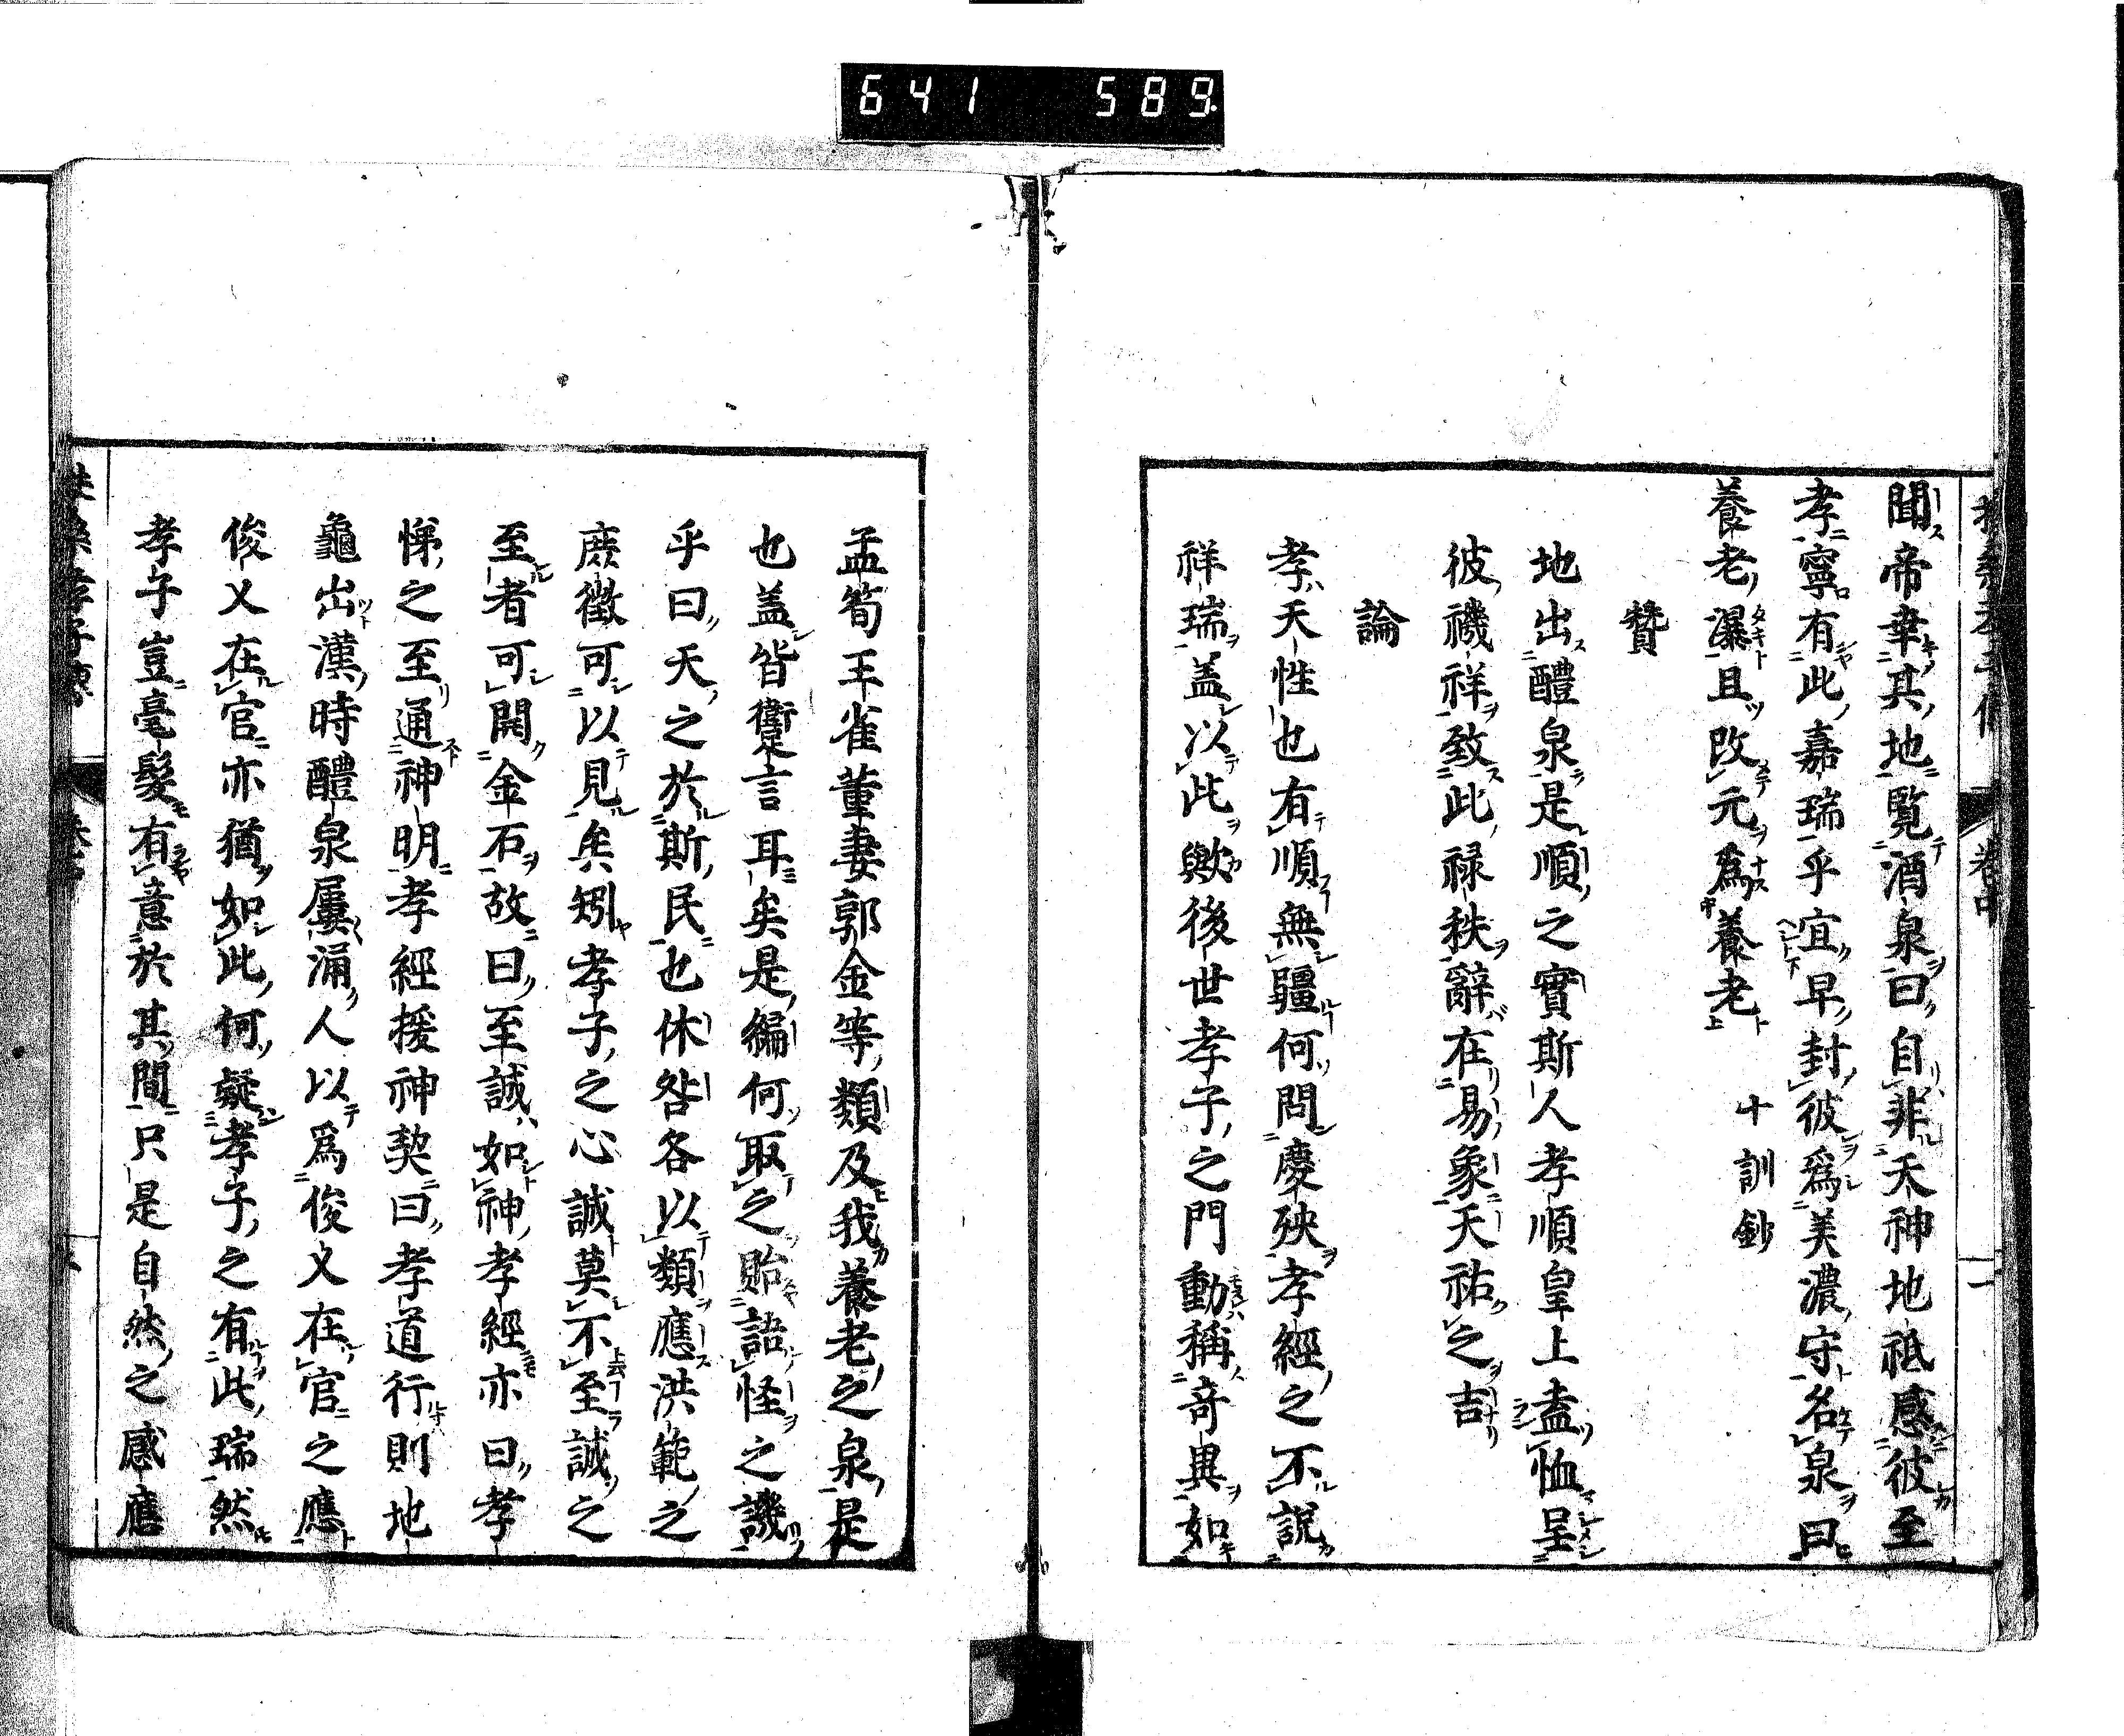 641 589
聞帝幸其地覧酒泉曰自非天神地祇感彼至
孝寧有此嘉瑞乎宜早封彼爲美濃守名泉曰
養老瀑且改元爲養老 十訓鈔
賛
地出醴泉是順之實斯人孝順皇上盍恤呈
彼禨祥致此禄秩辭在易象天祐之吉
論
孝天性也有順無疆何問慶殃孝經之不説
祥瑞蓋以此歟後世孝子之門動稱奇異如
卷中
孟筍王雀董妻郭金等類及我養老之泉是
也盖皆躗言耳矣是編何取之貽語怪之譏
乎曰天之於斯民也休咎各以類應洪範之
庶徴可以見矣矧孝子之心誠莫不至誠之
至者可開金石故曰至誠如神孝經亦曰孝
悌之至通神明孝經援神契曰孝道行則地
龜出漢時醴泉屢涌人以爲俊乂在官之應
俊乂在官亦猶如此何疑孝子之有此瑞然
孝子豈毫髮有意於其間只是自然之感應